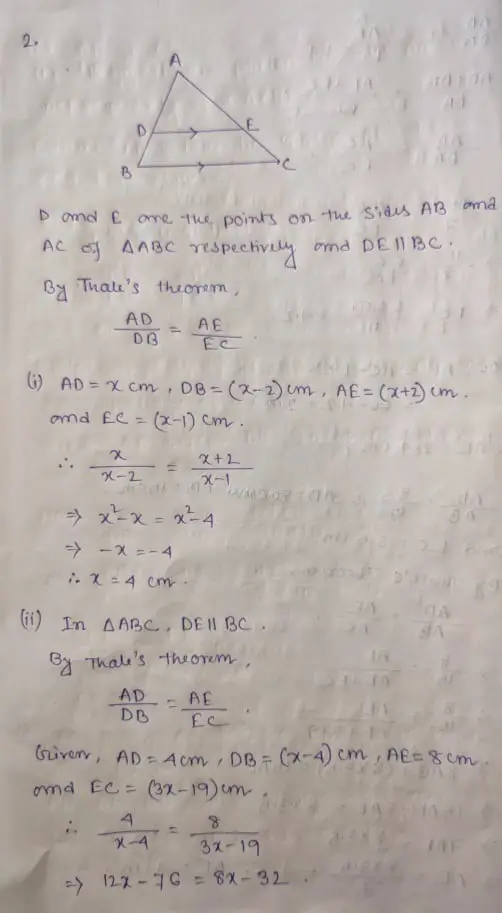 2.
A
D
E
B
C
D and E are the points on the sides AB and
AC of △ABC respectively and DE∥BC.
By Thale's theorem,
AD/DB = AE/EC.
(i) AD = x cm, DB = (x-2) cm, AE = (x+2) cm.
and EC = (x-1) cm.
∴ x/(x-2) = (x+2)/(x-1)
⇒ x²-x = x²-4
⇒ -x = -4
∴ x = 4 cm.
(ii) In △ABC, DE∥BC.
By Thale's theorem,
AD/DB = AE/EC.
Given, AD = 4cm, DB = (x-4) cm, AE = 8cm.
and EC = (3x-19) cm.
∴ 4/(x-4) = 8/(3x-19)
⇒ 12x - 76 = 8x - 32.